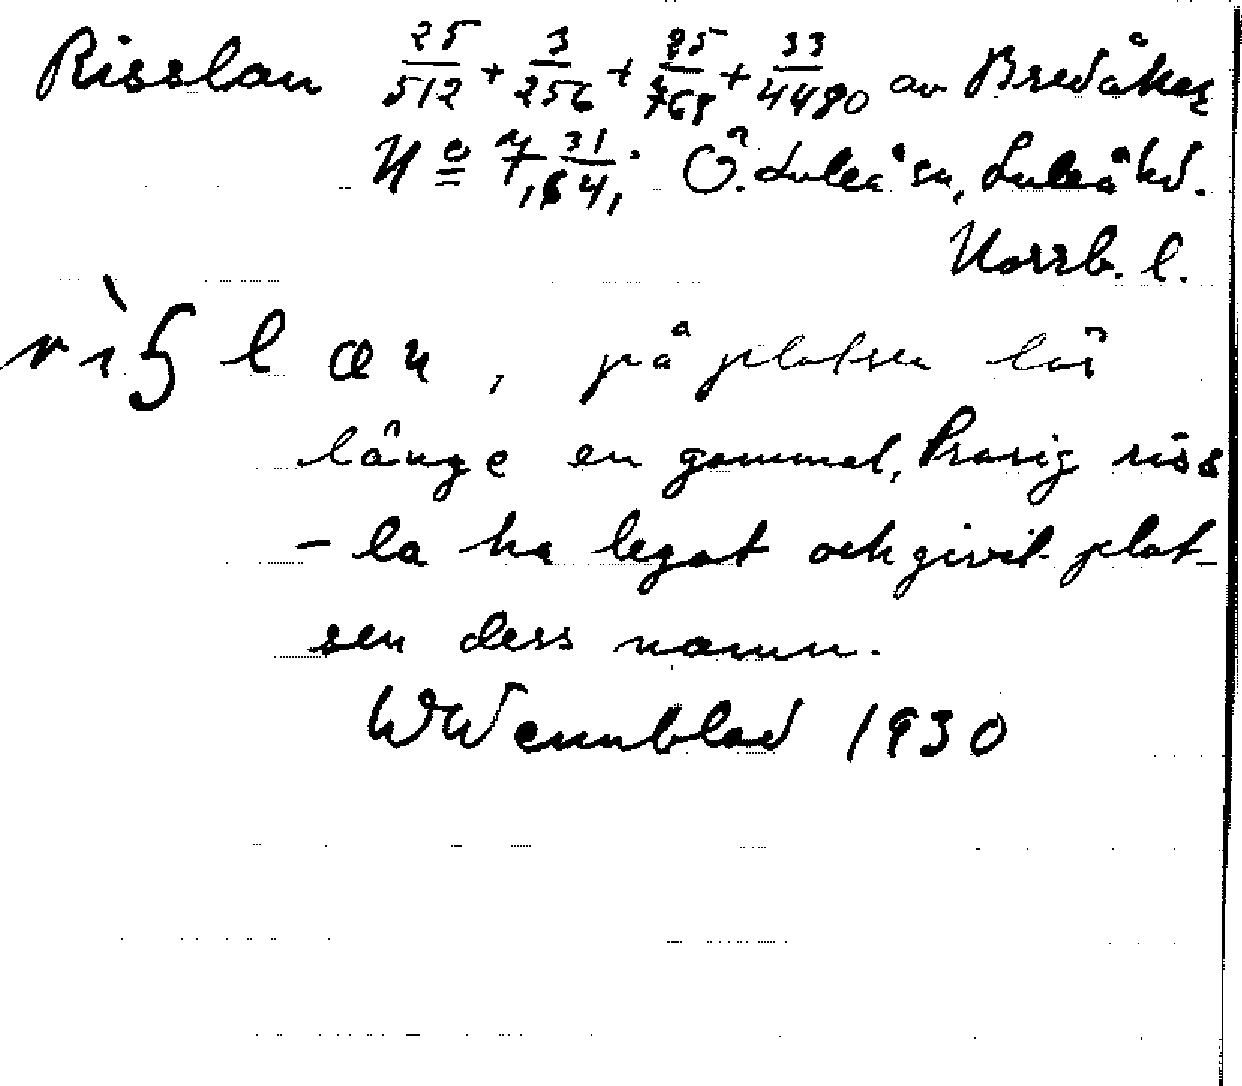 Risslan 25/512 + 3/256 + 25/768 + 33/4480 av Bredåker
N:o 7 31/64; Ö. Luleå sn, Luleå hd.
Norrb. l.
på platsen lär
länge en gammal, krasig riss
-la ha legat och givit plat-
sen dess namn.
W Wennblad 1930